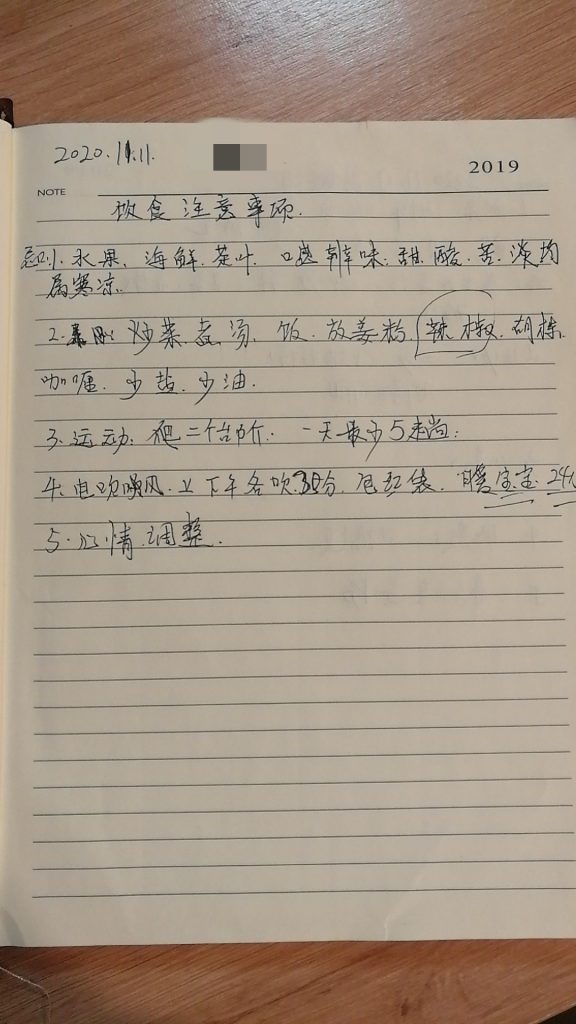 2020.11.11.
2019
NOTE
饮食注意事项.
忌口1. 水果、海鲜.茶叶. 口嚐辨味:甜.酸.苦.淡均
属寒凉.
2. 炒菜.煮汤.饭.放姜粉.辣椒.胡椒.
咖喱.少盐.少油.
3.运动: 爬二个台阶. 一天最少5
4.电吹风.上下午各吹30分. 暖宝宝.24
5.心情.调整.